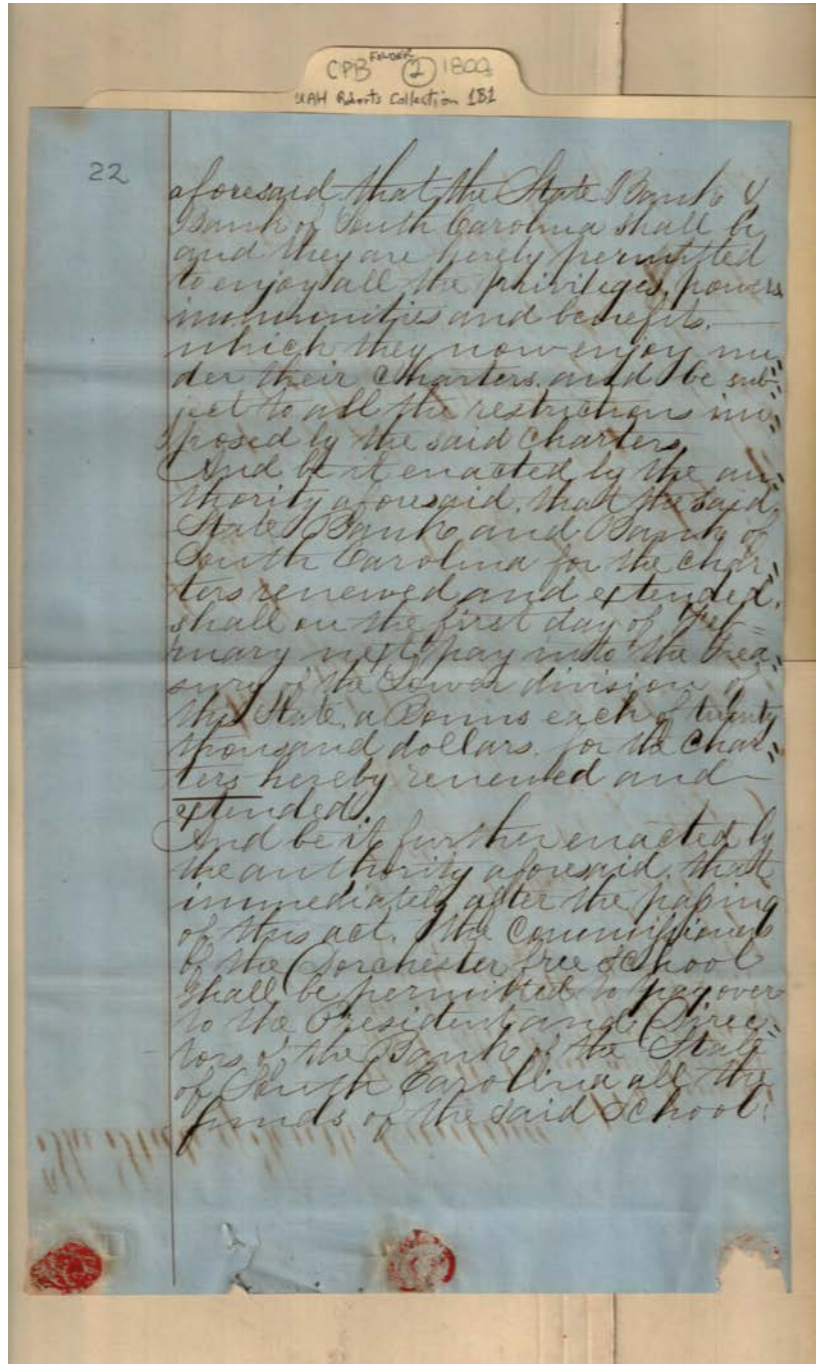 CPB FOLDER 2 180
UAH Roberts Collection 1B1
22
aforesaid that the State Bank &
Bank of South Carolina shall be
and they are hereby permitted
to enjoy all the privileges, powers
immunities and benefits.
which they now enjoy un-
der their Charters. and be sub-
ject to all the restrictions im-
posed by the said Charters.
And be it enacted by the au-
thority aforesaid. that the said
State Bank and Bank of
South Carolina for the char-
ters renewed and extended.
shall on the first day of Feb-
ruary next pay into the Trea-
sury of the Lower division of
this State, a Bonus each of twenty
thousand dollars. for the Char-
ters hereby renewed and
extended.
And be it further enacted by
the authority aforesaid. that
immediately after the passing
of this act. The Commissioners
of the Dorchester free School
shall be permitted to pay over
to the President and Direc-
tors of the Bank of the State
of South Carolina all the
funds of the said School.